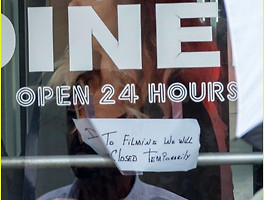 DINE
OPEN 24 HOURS
To Filming We will
Closed Temporarily